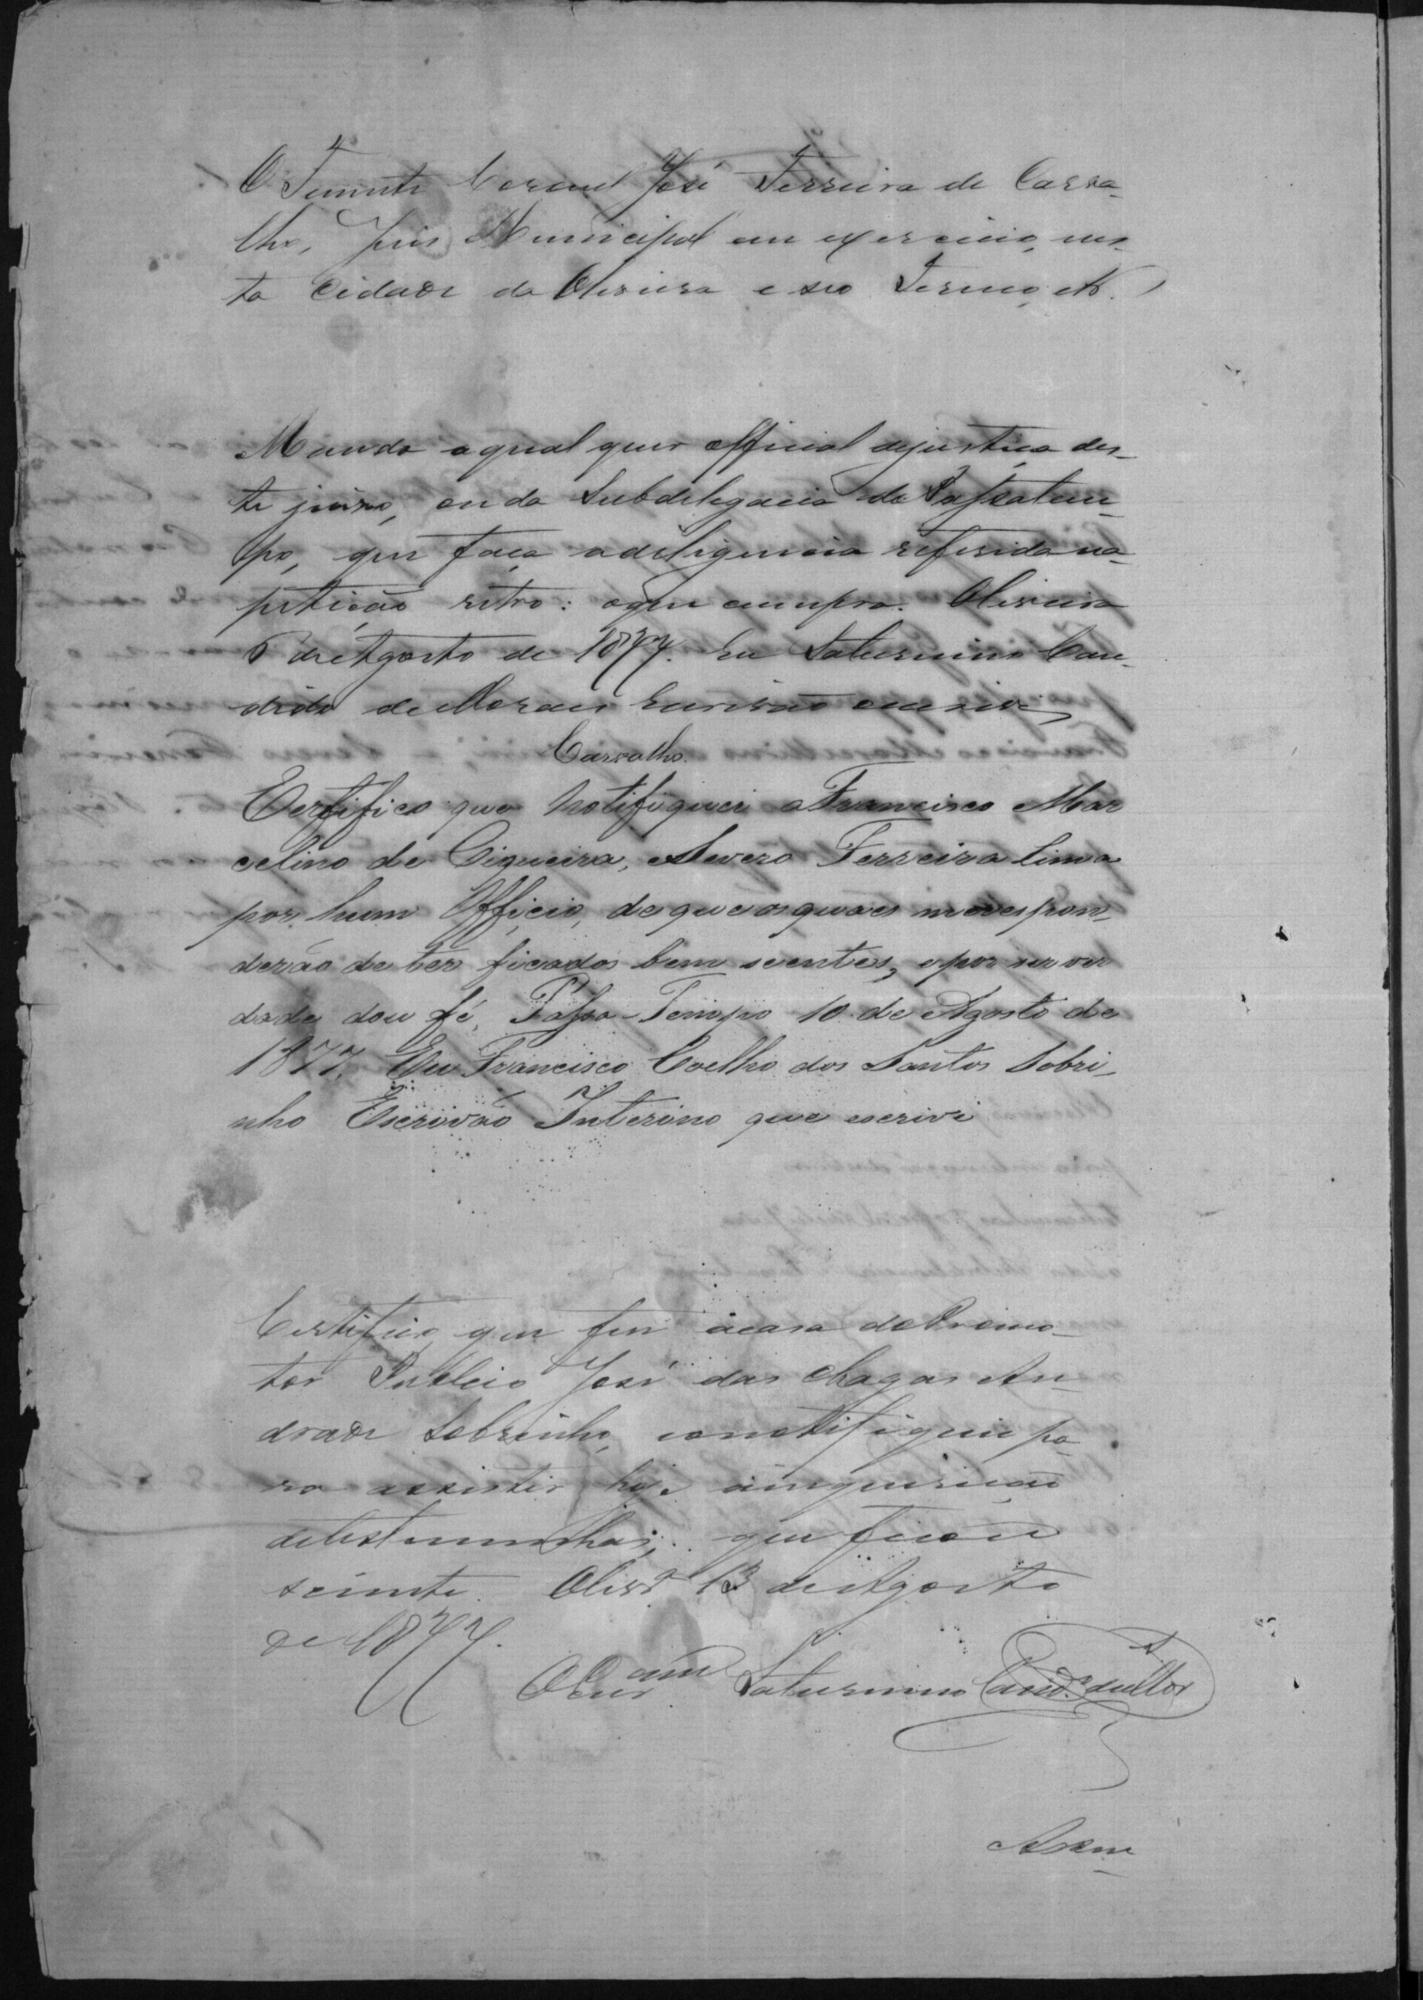 O Tenente Coronel José Ferreira de Carva-
lho, Juis Municipal em exercicio, nes-
ta Cidade da Oliveira e seo Termo, etc.
Mando a qual quer official dejustiça des-
te juiso, ou da Subdelegacia do Passatem-
po, que faça adeligencia referida na
petição retro: oque cumpra. Oliveira
6 de Agosto de 1877. Eu Saturnino Can-
dido de Moraes Escrivão escrevi
Carvalho.
Certifico que Notifiquei a Francisco Mar
celino de Ciqueira, e Severo Ferreira lima
por hum Officio, de que os quaes me respon-
derão de ter ficados bem scientes, e por ser ver
dade dou fé, Passa-Tempo 10 de Agosto de
1877, Eu Francisco Coelho dos Santos Sobri-
nho Escrivão Interino que escrivi
Certifico que fui ácasa do Promo-
tor Publico José das Chagas An-
drade Sobrinho, enotifiquei pa-
ra assistir hoje áinquirição
detestemunhas; que ficou
sciente. Olivrª 13 de Agosto
de 1877.
O Escram Saturnino Candº deMor
Assen-